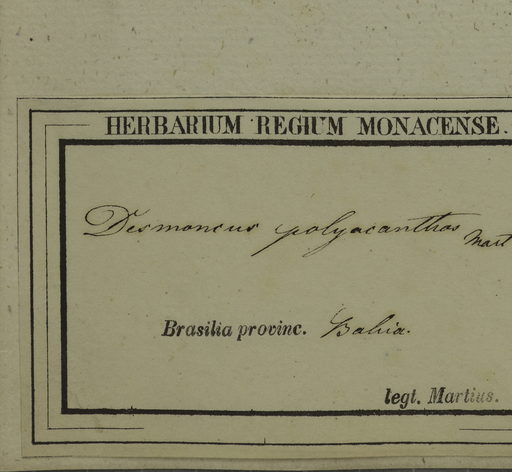 HERBARIUM REGIUM MONACENSE.
Desmoncus polyacanthos Mart
Brasilia provinc. Bahia.
legt. Martius.